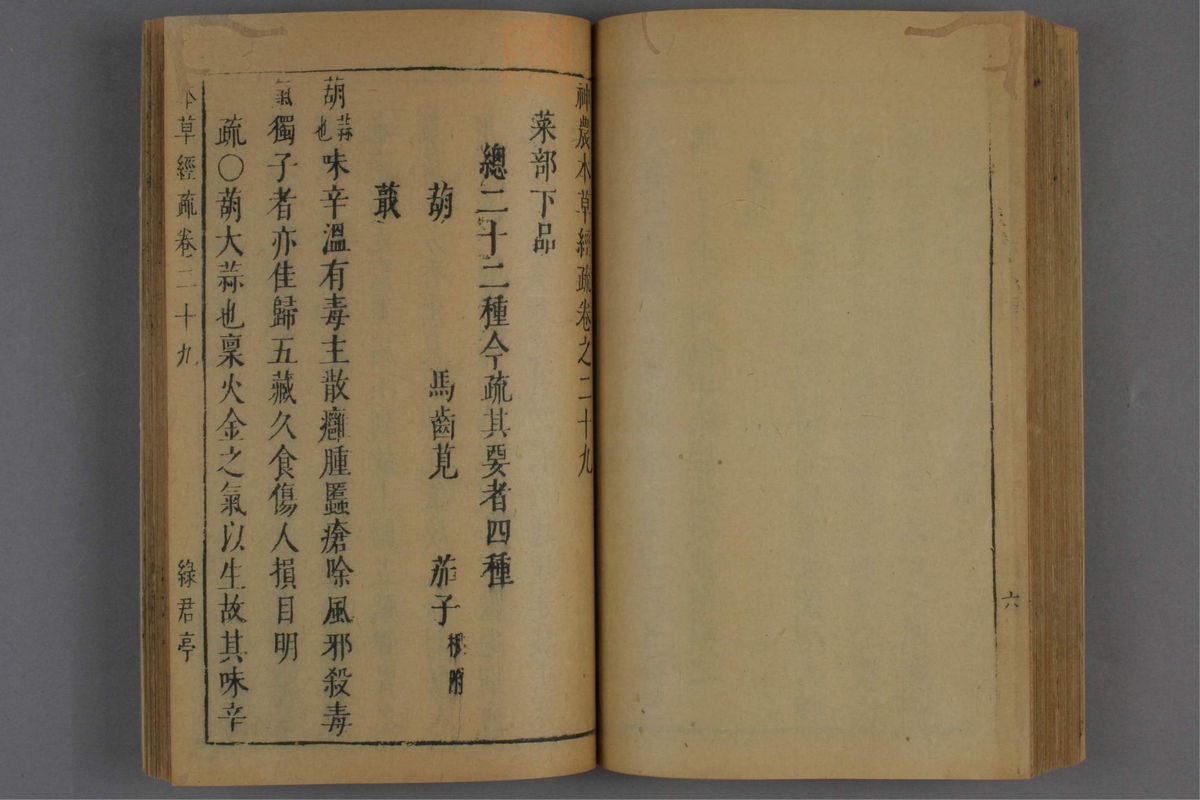 六
神農本草經疏卷之二十九
菜部下品
總二十二種今疏其要者四種
葫　馬齒莧　茄子根附
蕺
葫蒜也味辛溫有毒主散癰腫䘌瘡除風邪殺毒
氣獨子者亦佳歸五藏久食傷人損目明
疏○葫大蒜也稟火金之氣以生故其味辛
本草經疏卷二十九　綠君亭